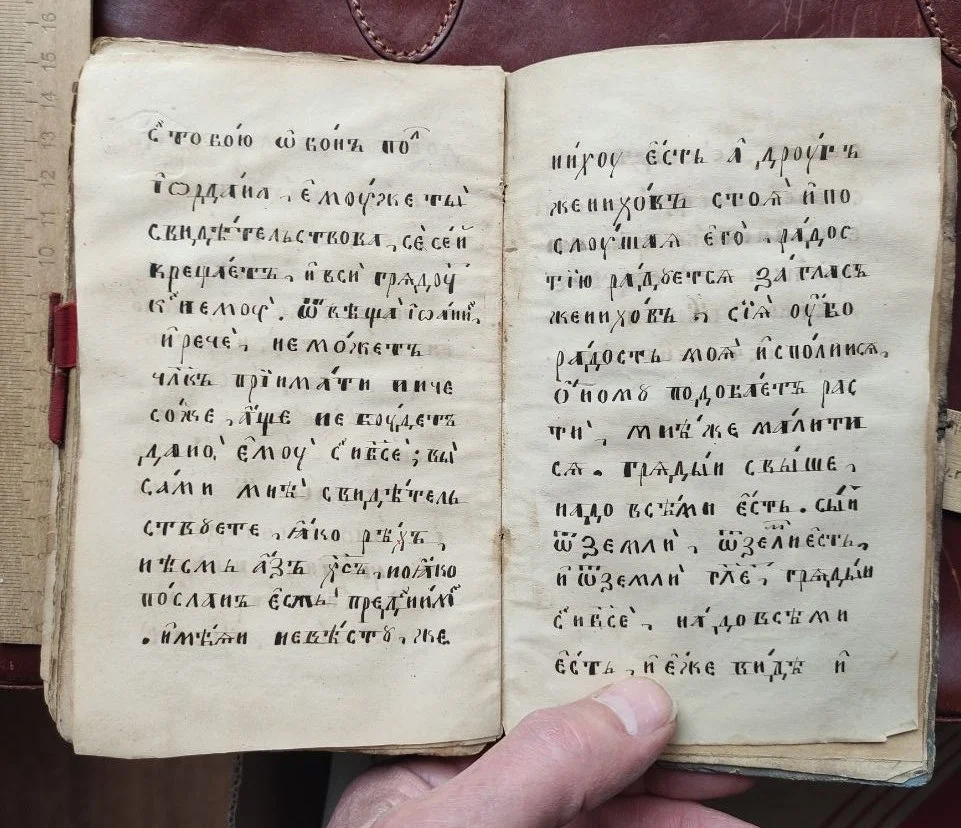 с̾ тобо́ю ѡ҆ бо́нъ по̾л
і҆ѻрда́на , є҆мꙋ́же ты̀
свидѣ́тельствова , сѐ се́й
креща́етъ , и҆ всѝ грѧдꙋ́т
к̾ немꙋ̀ . ѿвѣща̀ і҆ѡа́нн ,
и҆ речѐ , не мо́жетъ
чл҃къ прїима́ти ниче
со́же , а҆́ще не бꙋ́детъ
дано̀ є҆мꙋ̀ с̾ нб҃сѐ ; вы̀
са́ми мнѣ̀ свидѣ́тель
ствꙋете , ꙗ҆́ко рѣ́хъ ,
нѣ́смь а҆́зъ хс҃ъ , но ꙗ҆́ко
по́сланъ є҆́смь пред̾ ни́м
. и҆мѣ́ѧи невѣ́стꙋ , же
ни́хꙋ є҆́сть а҆ дрꙋ́гъ
женихо́въ стоѧ̀ и҆ по
слꙋ́шаѧ є҆гѡ̀ , ра́дос
тїю ра́дꙋетсѧ за гласъ
женихо́въ , сїѧ̀ ꙋ҆́бо
ра́дость моѧ̀ и҆спо́лнисѧ ,
ѻ҆́номꙋ подоба́етъ рас
тѝ , мнѣ́ же ма́лити
сѧ . грѧды́и свы́ше ,
надо всѣ́ми є҆́сть . сы́й
ѿ землѝ , ѿ земли є҆́сть ,
и҆ ѿ землѝ гл҃е , грѧды́и
с̾ нб҃сѐ , на́до всѣми
є҆́сть , и҆ є҆́же ви́дѣ и҆